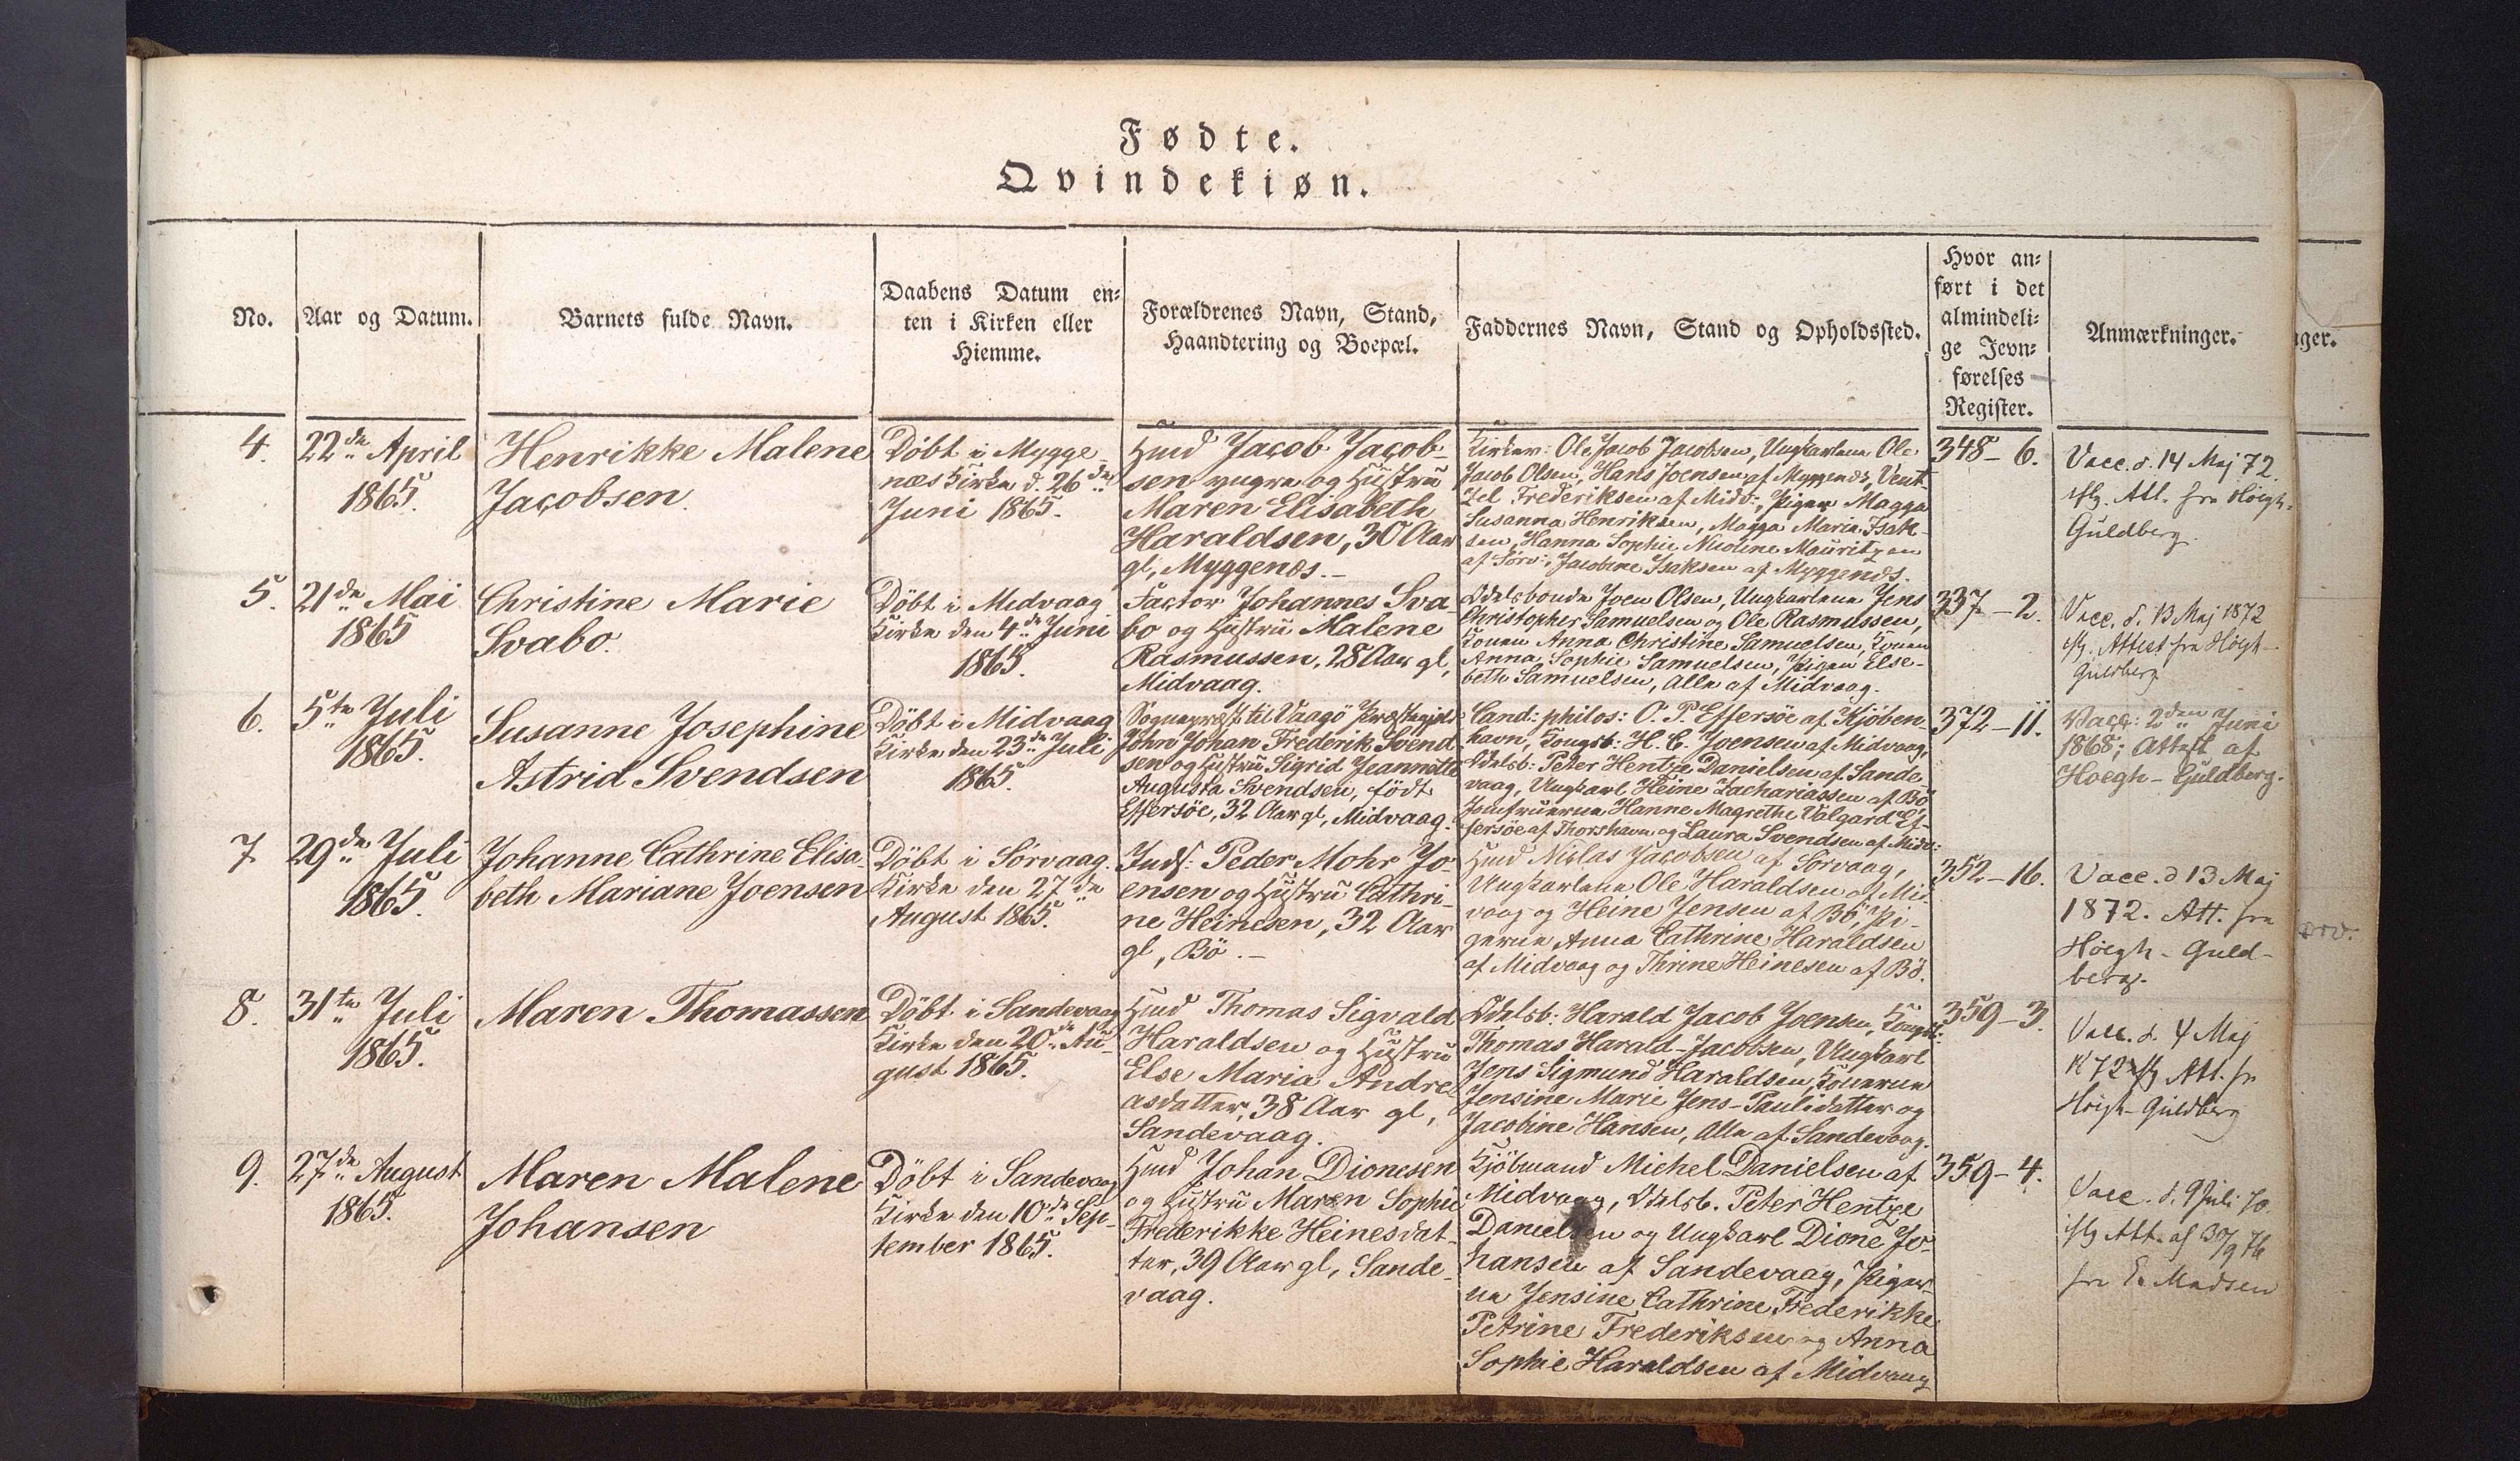 Fødte.
Qvindekiøn.
No.
Aar og Datum.
Barnets fulde Navn.
Daabens Datum en-
ten i Kirken eller
Hiemme.
Forældrenes Navn, Stand,
Haandtering og Boepæl.
Faddernes Navn, Stand og Opholdssted.
Hvor an-
ført i det
almindeli-
ge Jevn-
førelses
Register.
Anmærkninger.
nger.
4.
22de April
1865.
Henrikke Malene
Jacobsen.
Döbt i Mygge-
næs Kirke d. 26de
Juni 1865.
Hmd Jacob Jacob-
sen yngre og Hustru
Maren Elisabeth
Haraldsen, 30 Aar
gl, Myggenæs.-
Ole Jacob Jacobsen, Ungkarlene Ole
Jacob Olsen, Hans Joensen af Myggenæs, Vent-
zel Frederiksen af Midv:, Piger Magga
Susanna Henriksen, Magga Maria Isak-
sen, Hanna Sophie Nicoline Mauritzen
af Sörv:, Jacobine Isaksen af Myggenæs.
348-6.
Vacc. d. 14 Maj 72.
iflg. Att. fra Höegh-
Guldberg.
5.
21de Mai
1865
Christine Marie
Svabo.
Döbt i Midvaag
Kirke den 4de Juni
1865.
Factor Johannes Sva-
bo og Hustru Malene
Rasmussen, 28 Aar gl,
Midvaag.
Odelsbonde Joen Olsen, Ungkarlene Jens
Christopher Samuelsen og Ole Rasmussen,
Konen Anna Christine Samuelsen, Konen
Anna Sophie Samuelsen, Pigen Else-
beth Samuelsen, Alle af Midvaag.
337-2.
Vacc. d. 13 Maj 1872
iflg. Attest fra Höegh-
Guldberg
6.
5te Juli
1865.
Susanne Josephine
Astrid Svendsen
Döbt i Midvaag
Kirke den 23de Juli
1865.
Sognepræst til Vaagö Præstegjeld
John Johan Frederik Svend-
sen og Hustru Sigrid Jeannette
Augusta Svendsen, födt
Effersöe, 32 Aar gl, Midvaag.
Cand: philos: O. P. Effersöe af Kjöben-
havn, Kongsb: H. C. Joensen af Midvaag,
Odelsb: Peter Hentze Danielsen af Sande-
vaag, Ungkarl Heine Zachariassen af Bö
Jomfruerne Hanne Magrethe Valgard Ef-
fersöe af Thorshavn og Laura Svendsen af Midv:
372-11.
Vacc: 2den Juni
1868; Attest af
Hoegh-Guldberg.
7
29de Juli
1865.
Johanne Cathrine Elisa-
beth Mariane Joensen
Döbt i Sörvaag
Kirke den 27de
August 1865.
Inds: Peder Mohr Jo-
ensen og Hustru Cathri-
ne Heinesen, 32 Aar
gl, Bö.-
Hmd Niclas Jacobsen af Sörvaag,
Ungkarlene Ole Haraldsen af Mid-
vaag og Heine Jensen af Bö, Pi-
gerne Anna Cathrine Haraldsen
af Midvaag og Thrine Heinesen af Bö.
352-16.
Vacc. d 13 Maj
1872. Att. fra
Höegh-Guld-
berg.
8.
31te Juli
1865.
Maren Thomassen
Döbt i Sandevaag
Kirke den 20de Au-
gust 1865.
Hmd Thomas Sigvald
Haraldsen og Hustru
Else Maria Andre-
asdatter, 38 Aar gl,
Sandevaag.
Odelsb: Harald Jacob Joensen, Kongsb:
Thomas Harald Jacobsen, Ungkarl
Jens Sigmund Haraldsen, Konerne
Jensine Marie Jens-Paulidatter og
Jacobine Hansen, Alle af Sandevaag.
359-3.
Vacc. d. 4 Maj
1872 iflg Att. fr
Höegh-Guldberg
9.
27de August
1865.
Maren Malene
Johansen
Döbt i Sandevaag
Kirke den 10de Sep-
tember 1865.
Hmd Johan Dionesen
og Hustru Maren Sophie
Frederikke Heinesdat-
ter, 39 Aar gl, Sande-
vaag.
Kjöbmand Michel Danielsen af
Midvaag, Odelsb. Peter Hentze
Danielsen og Ungkarl Dione Jo-
hansen af Sandevaag, Piger-
ne Jensine Cathrine Frederikke
Petrine Frederiksen og Anna
Sophie Haraldsen af Midvaag
359-4.
Vacc. d. 9 Juli 70.
iflg Att. af 30/9 76
fra E. Madsen